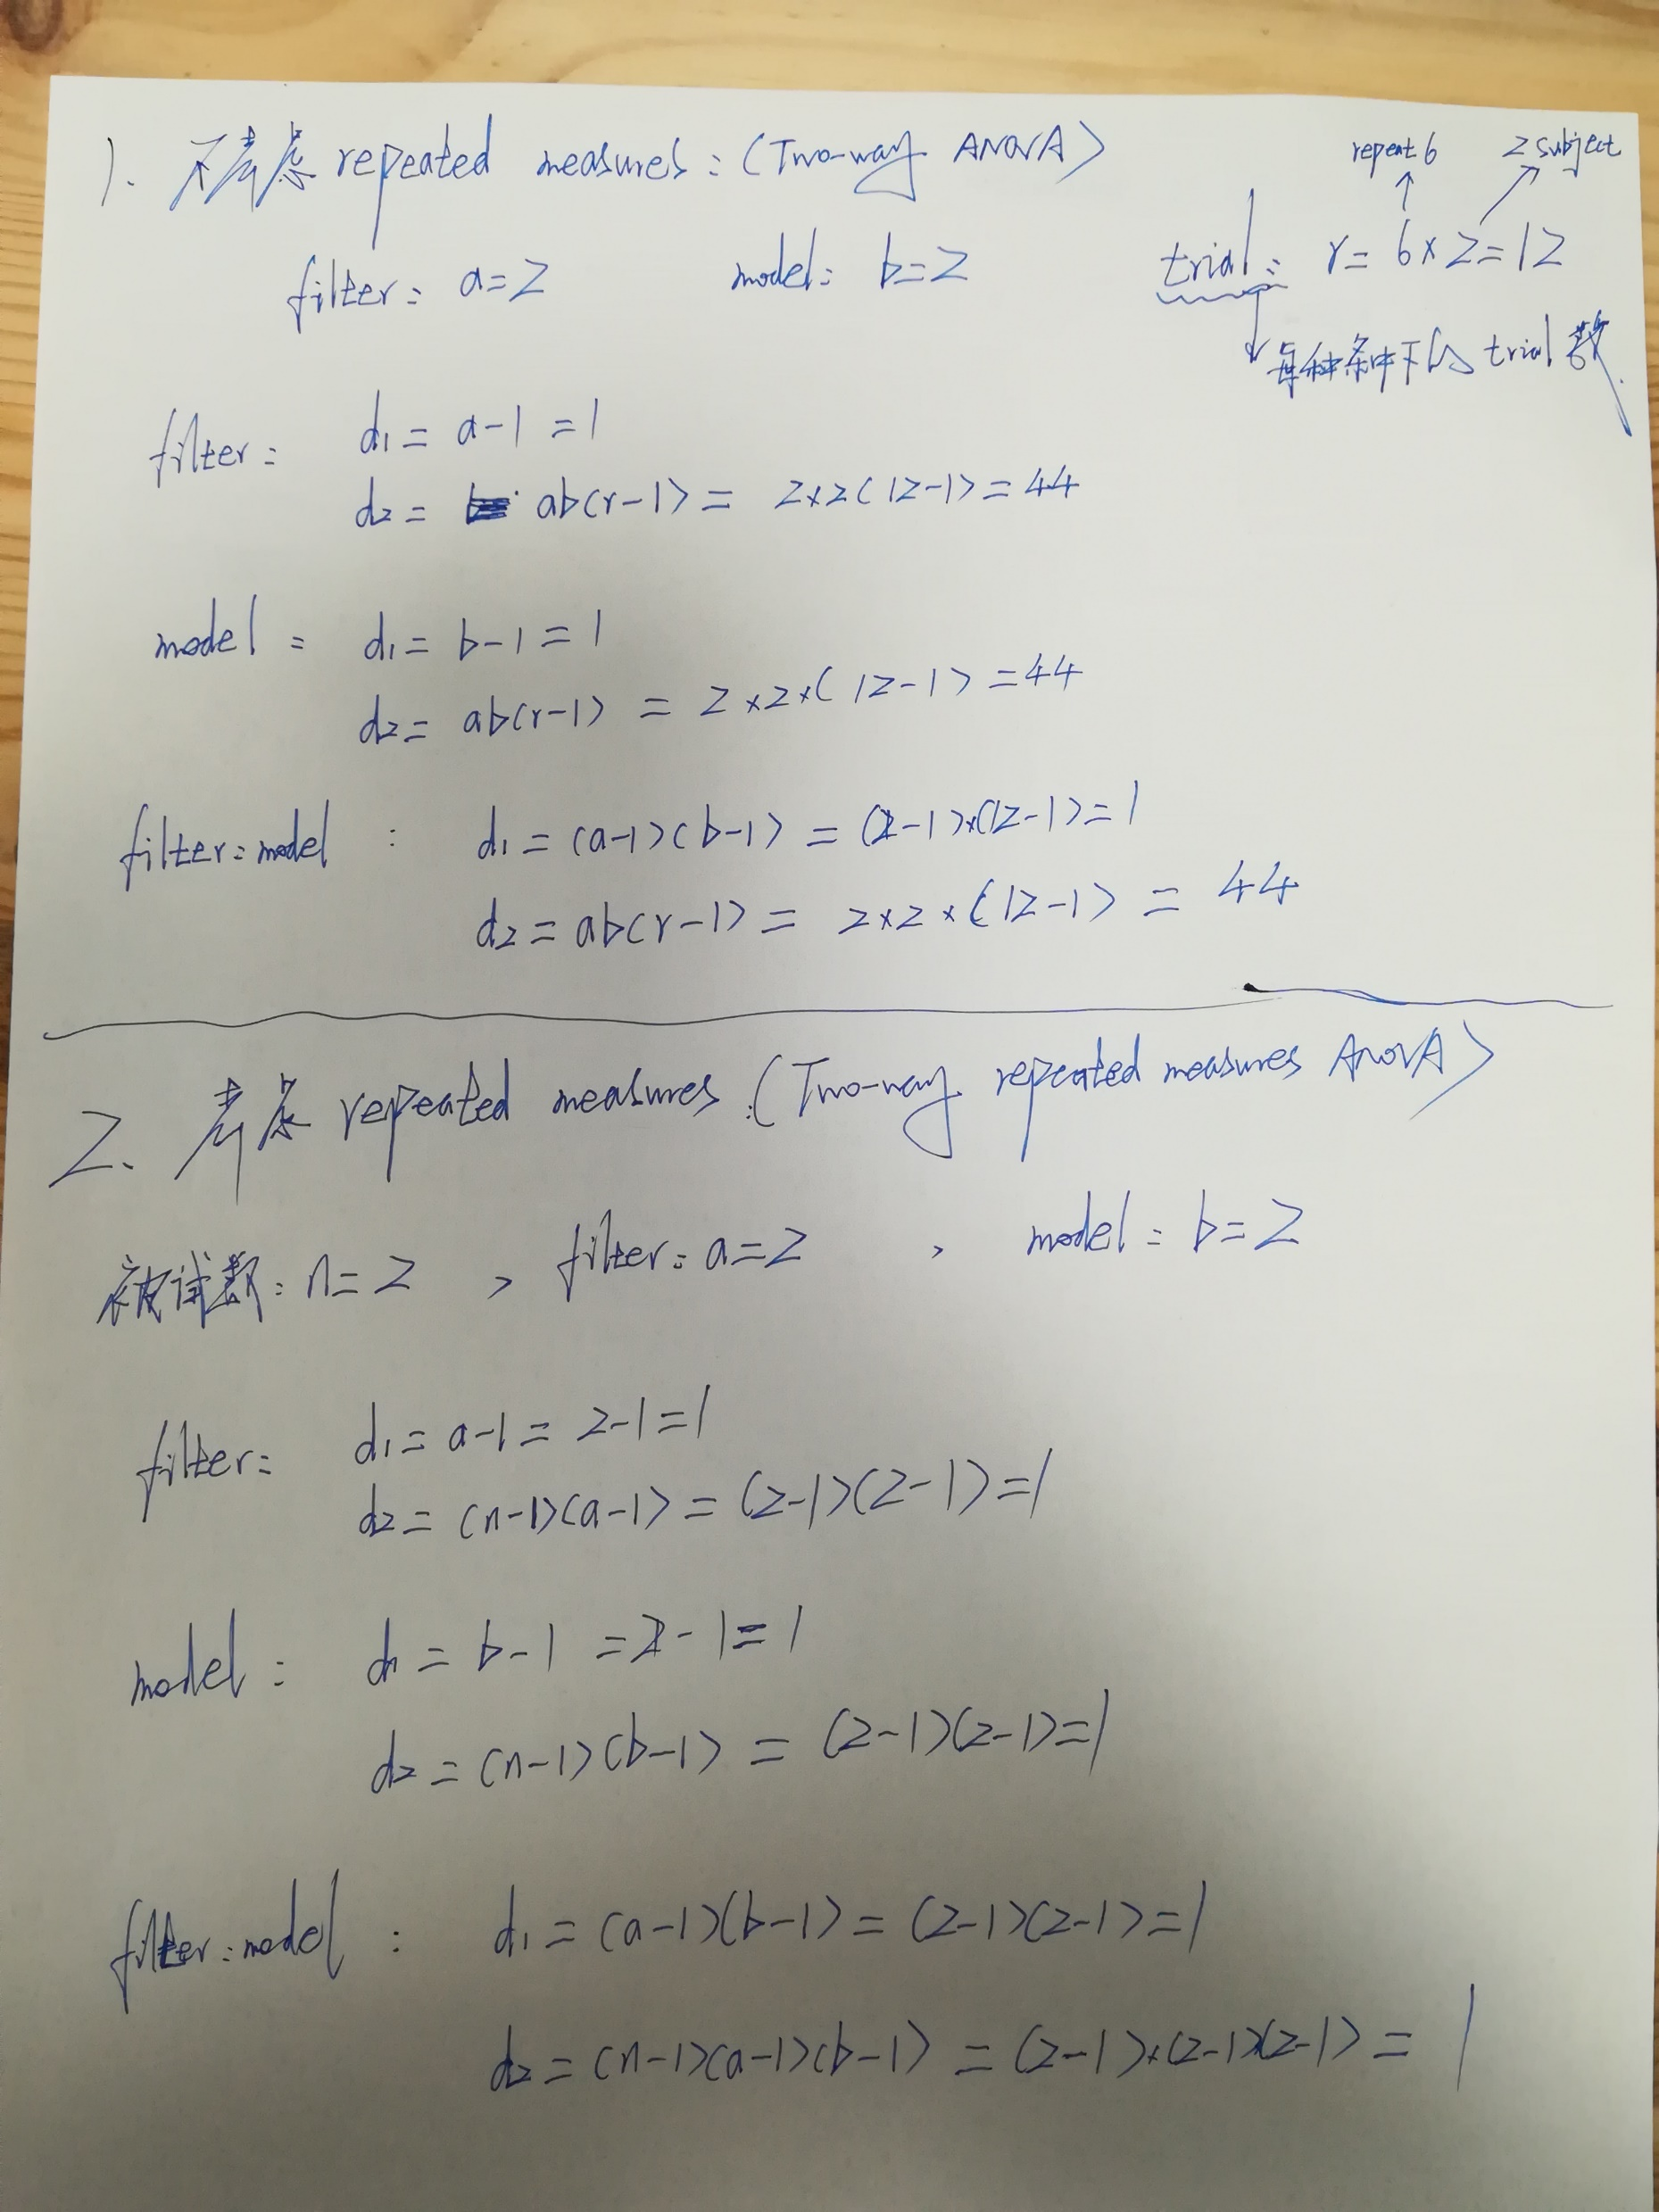 1. 不考虑 repeated measures: (Two-way ANOVA)
repeat 6 2 subject
filter: a=2 model: b=2 trial: r= 6×2=12
每种条件下的 trial 数.
filter: d1= a-1 =1
d2= ab(r-1)= 2×2(12-1)=44
model: d1= b-1=1
d2= ab(r-1) = 2×2×(12-1)=44
filter:model : d1=(a-1)(b-1)=(2-1)×(12-1)=1
d2=ab(r-1)= 2×2×(12-1) = 44
2. 考虑 repeated measures: (Two-way repeated measures ANOVA)
被试数: n=2 , filter: a=2 , model: b=2
filter: d1= a-1= 2-1=1
d2= (n-1)(a-1)=(2-1)(2-1)=1
model: d1= b-1 =2-1=1
d2=(n-1)(b-1) = (2-1)(2-1)=1
filter:model : d1=(a-1)(b-1)=(2-1)(2-1)=1
d2=(n-1)(a-1)(b-1) =(2-1)×(2-1)(2-1)= 1